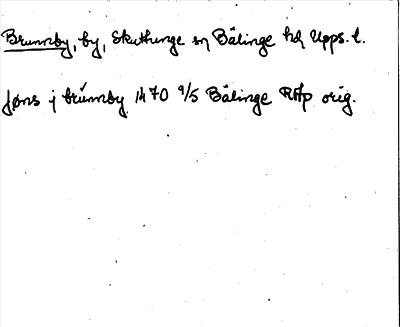 Brunnby, by, Skuthunge sn Bälinge hd Upps. l.
Jøns j brúnnby 1470 9/5 Bälinge RAp orig.